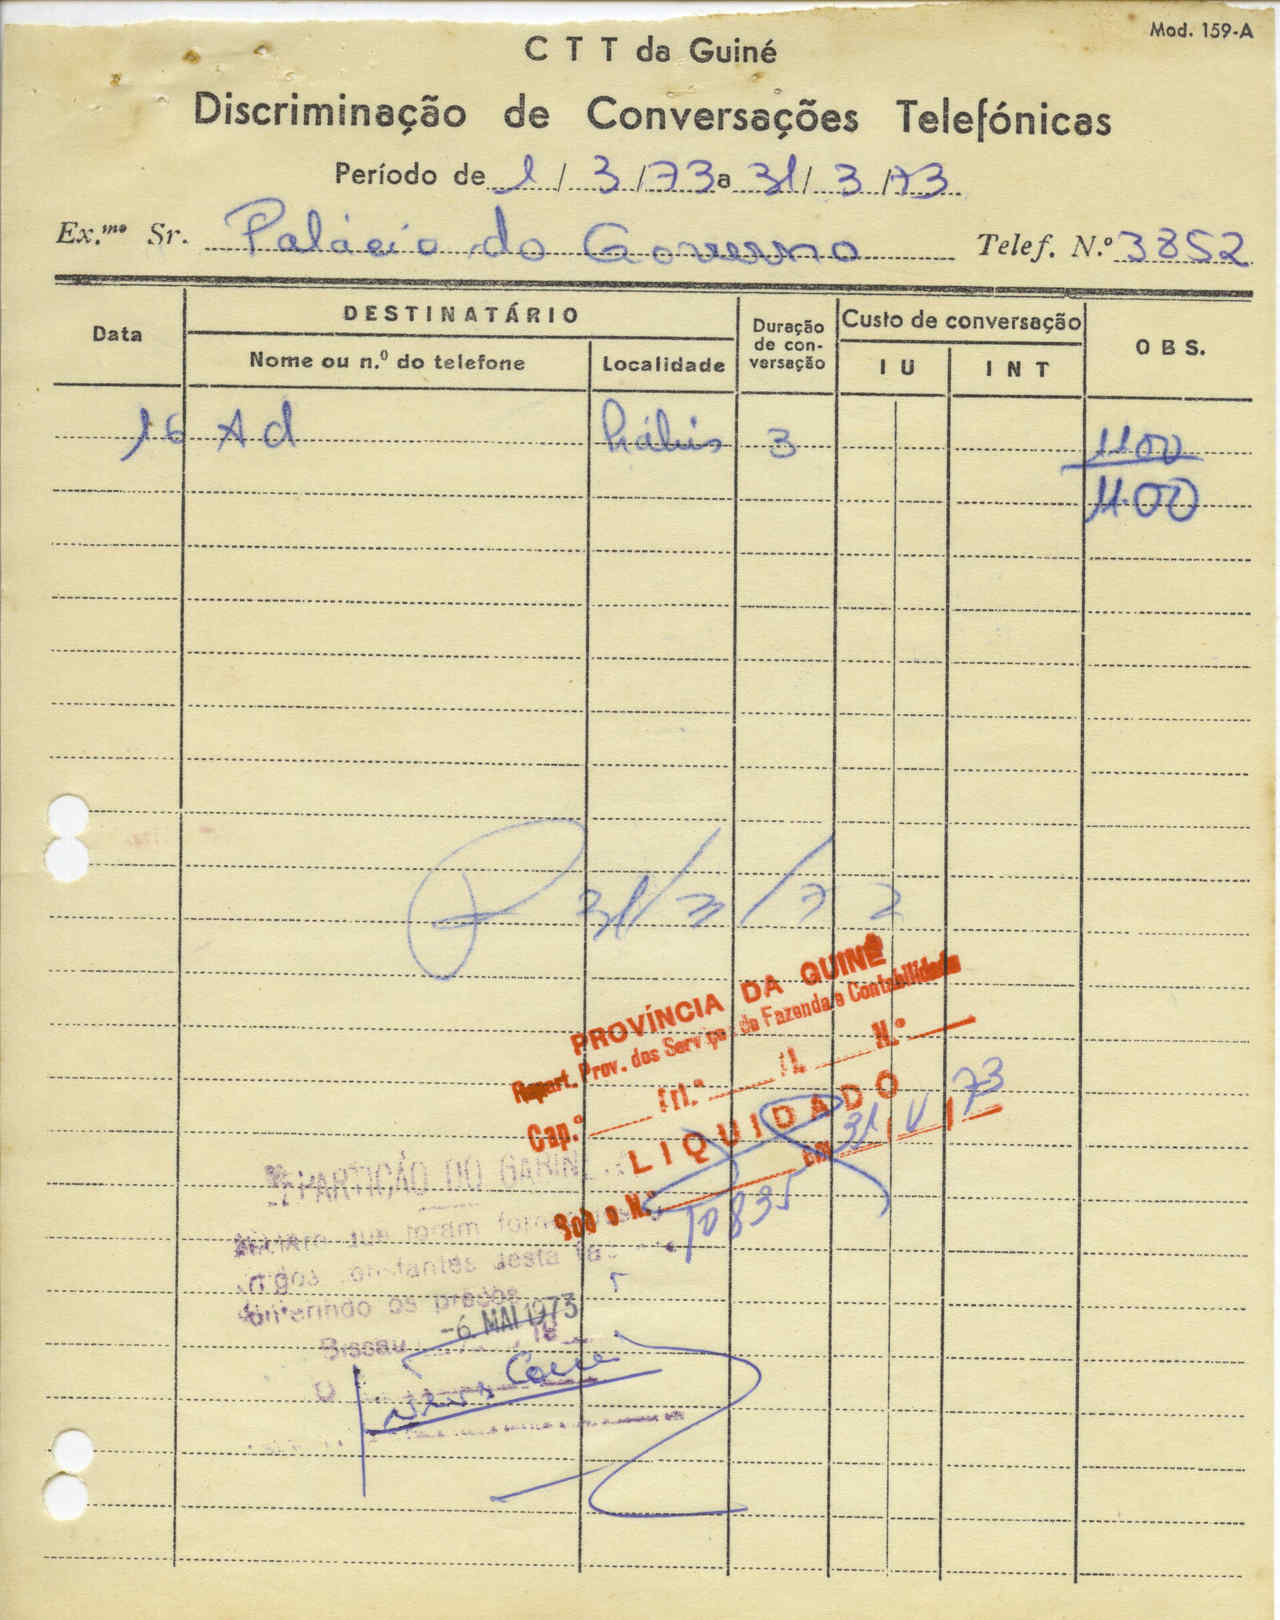 Mod. 159-A
C T T da Guiné
Discriminação de Conversações Telefónicas
Período de 1/3/73 a 31/3/73
Ex.mo Sr. Palácio do Governo Telef. N.º 3852
Data
DESTINATÁRIO
Nome ou n.º do telefone
Localidade
Duração de con-versação
Custo de conversação
I U
I N T
O B S.
16 Ad 3 1100
1100
31/3/7
PROVÍNCIA DA GUINÉ
Repart. Prov. dos Serviços de Fazenda e Contabilidade
Cap.º N.º
LIQUIDADO
Sob o N.º 10835 em 31/V/73
que foram
constantes desta
os preços
Bissau -6 MAI 1973
O